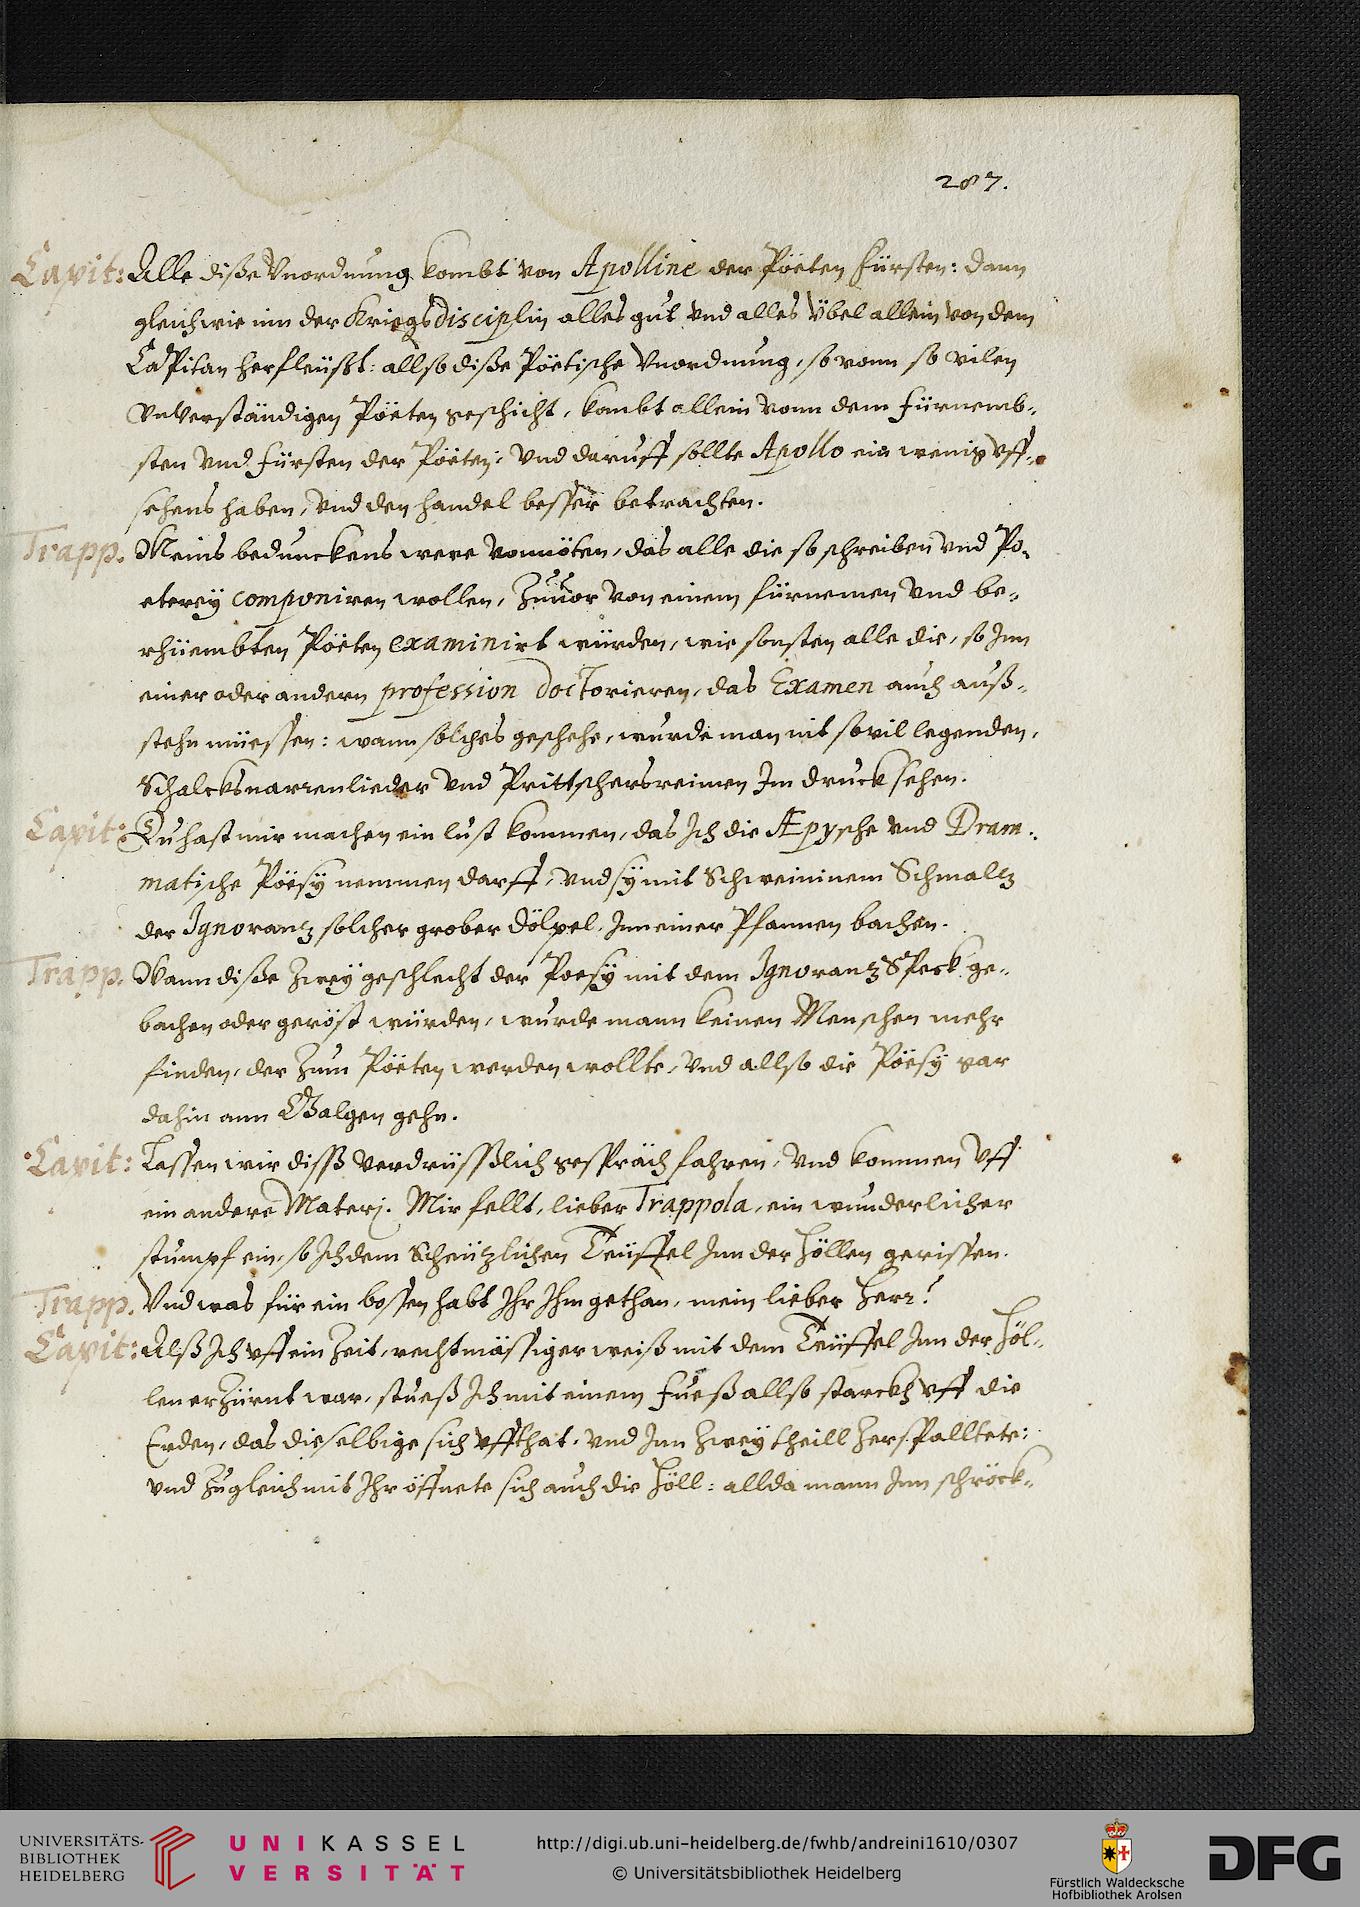 287.
Capit: Alle diße Vnordnung kombt von Apolline der Pöeten Fürsten: dann
gleich wie inn der Kriegsdisciplin alles gut vnd alles übel allein von dem
Capitan herfleüßt: allso diße Pöetische Vnordnung, so vonn so vilen
vnverständigen Pöeten geschicht, kombt allein vonn dem fürnemb-
sten vnd Fürsten der Pöeten: vnd daruff sollte Apollo ein wenig vff-
sehens haben, vnd den handel besser betrachten.
Trapp. Meins bedunckens were vonnöten, das alle die so schreiben vnd Po-
eterey componiren wollen, Zuuor von einem fürnemen vnd be-
rhüembten Pöeten examinirt würden, wie sonsten alle die, so Inn
einer oder andern profession doctorieren, das Examen auch auß-
stehn müessen: wann solches geschehe, wurde man nit sovil legenden,
Schalcksnarrenlieder vnd Prittschersreimen Im druck sehen.
Capit: Du hast mir machen ein lust kommen, das Ich die Æpysche vnd Dram-
matische Pöesy nemmen darff, vnd sy mit Schweininem Schmaltz
der Ignorantz solcher grober dölpel, Inn einer Pfannen bachen.
Trapp. Wann diße Zwey geschlecht der Poesy mit dem Ignorantz Speck ge-
bachen oder geröst würden, wurde mann keinen Menschen mehr
finden, der Zum Pöeten werden wollte, vnd allso die Pöesy gar
dahin ann Galgen gehn.
Capit: Lassen wir diß verdrüßlich gespräch fahren, vnd kommen vff
ein andere Materj. Mir fellt, lieber Trappola, ein wunderlicher
stumpf ein, so Ich dem Scheützlichen Teüffel Inn der Höllen gerissen.
Trapp. Vnd was für ein bossen habt Ihr Ihm gethan, mein lieber Herr?
Capit: Alß Ich vff ein Zeit, rechtmässiger weiß mit dem Teüffel Inn der Höl-
len erZürnt war, stueß Ich mit einem Fueß allso starckh vff die
Erden, das dieselbige sich vffthat, vnd Inn Zwey theill Zerspalltete:
vnd Zugleich mit Ihr öffnete sich auch die Höll: allda mann Inn schröck-
UNIVERSITÄTS-
BIBLIOTHEK
HEIDELBERG
UNIKASSEL
VERSITÄT
http://digi.ub.uni-heidelberg.de/fwhb/andreini1610/0307
© Universitätsbibliothek Heidelberg
Fürstlich Waldecksche
Hofbibliothek Arolsen
DFG